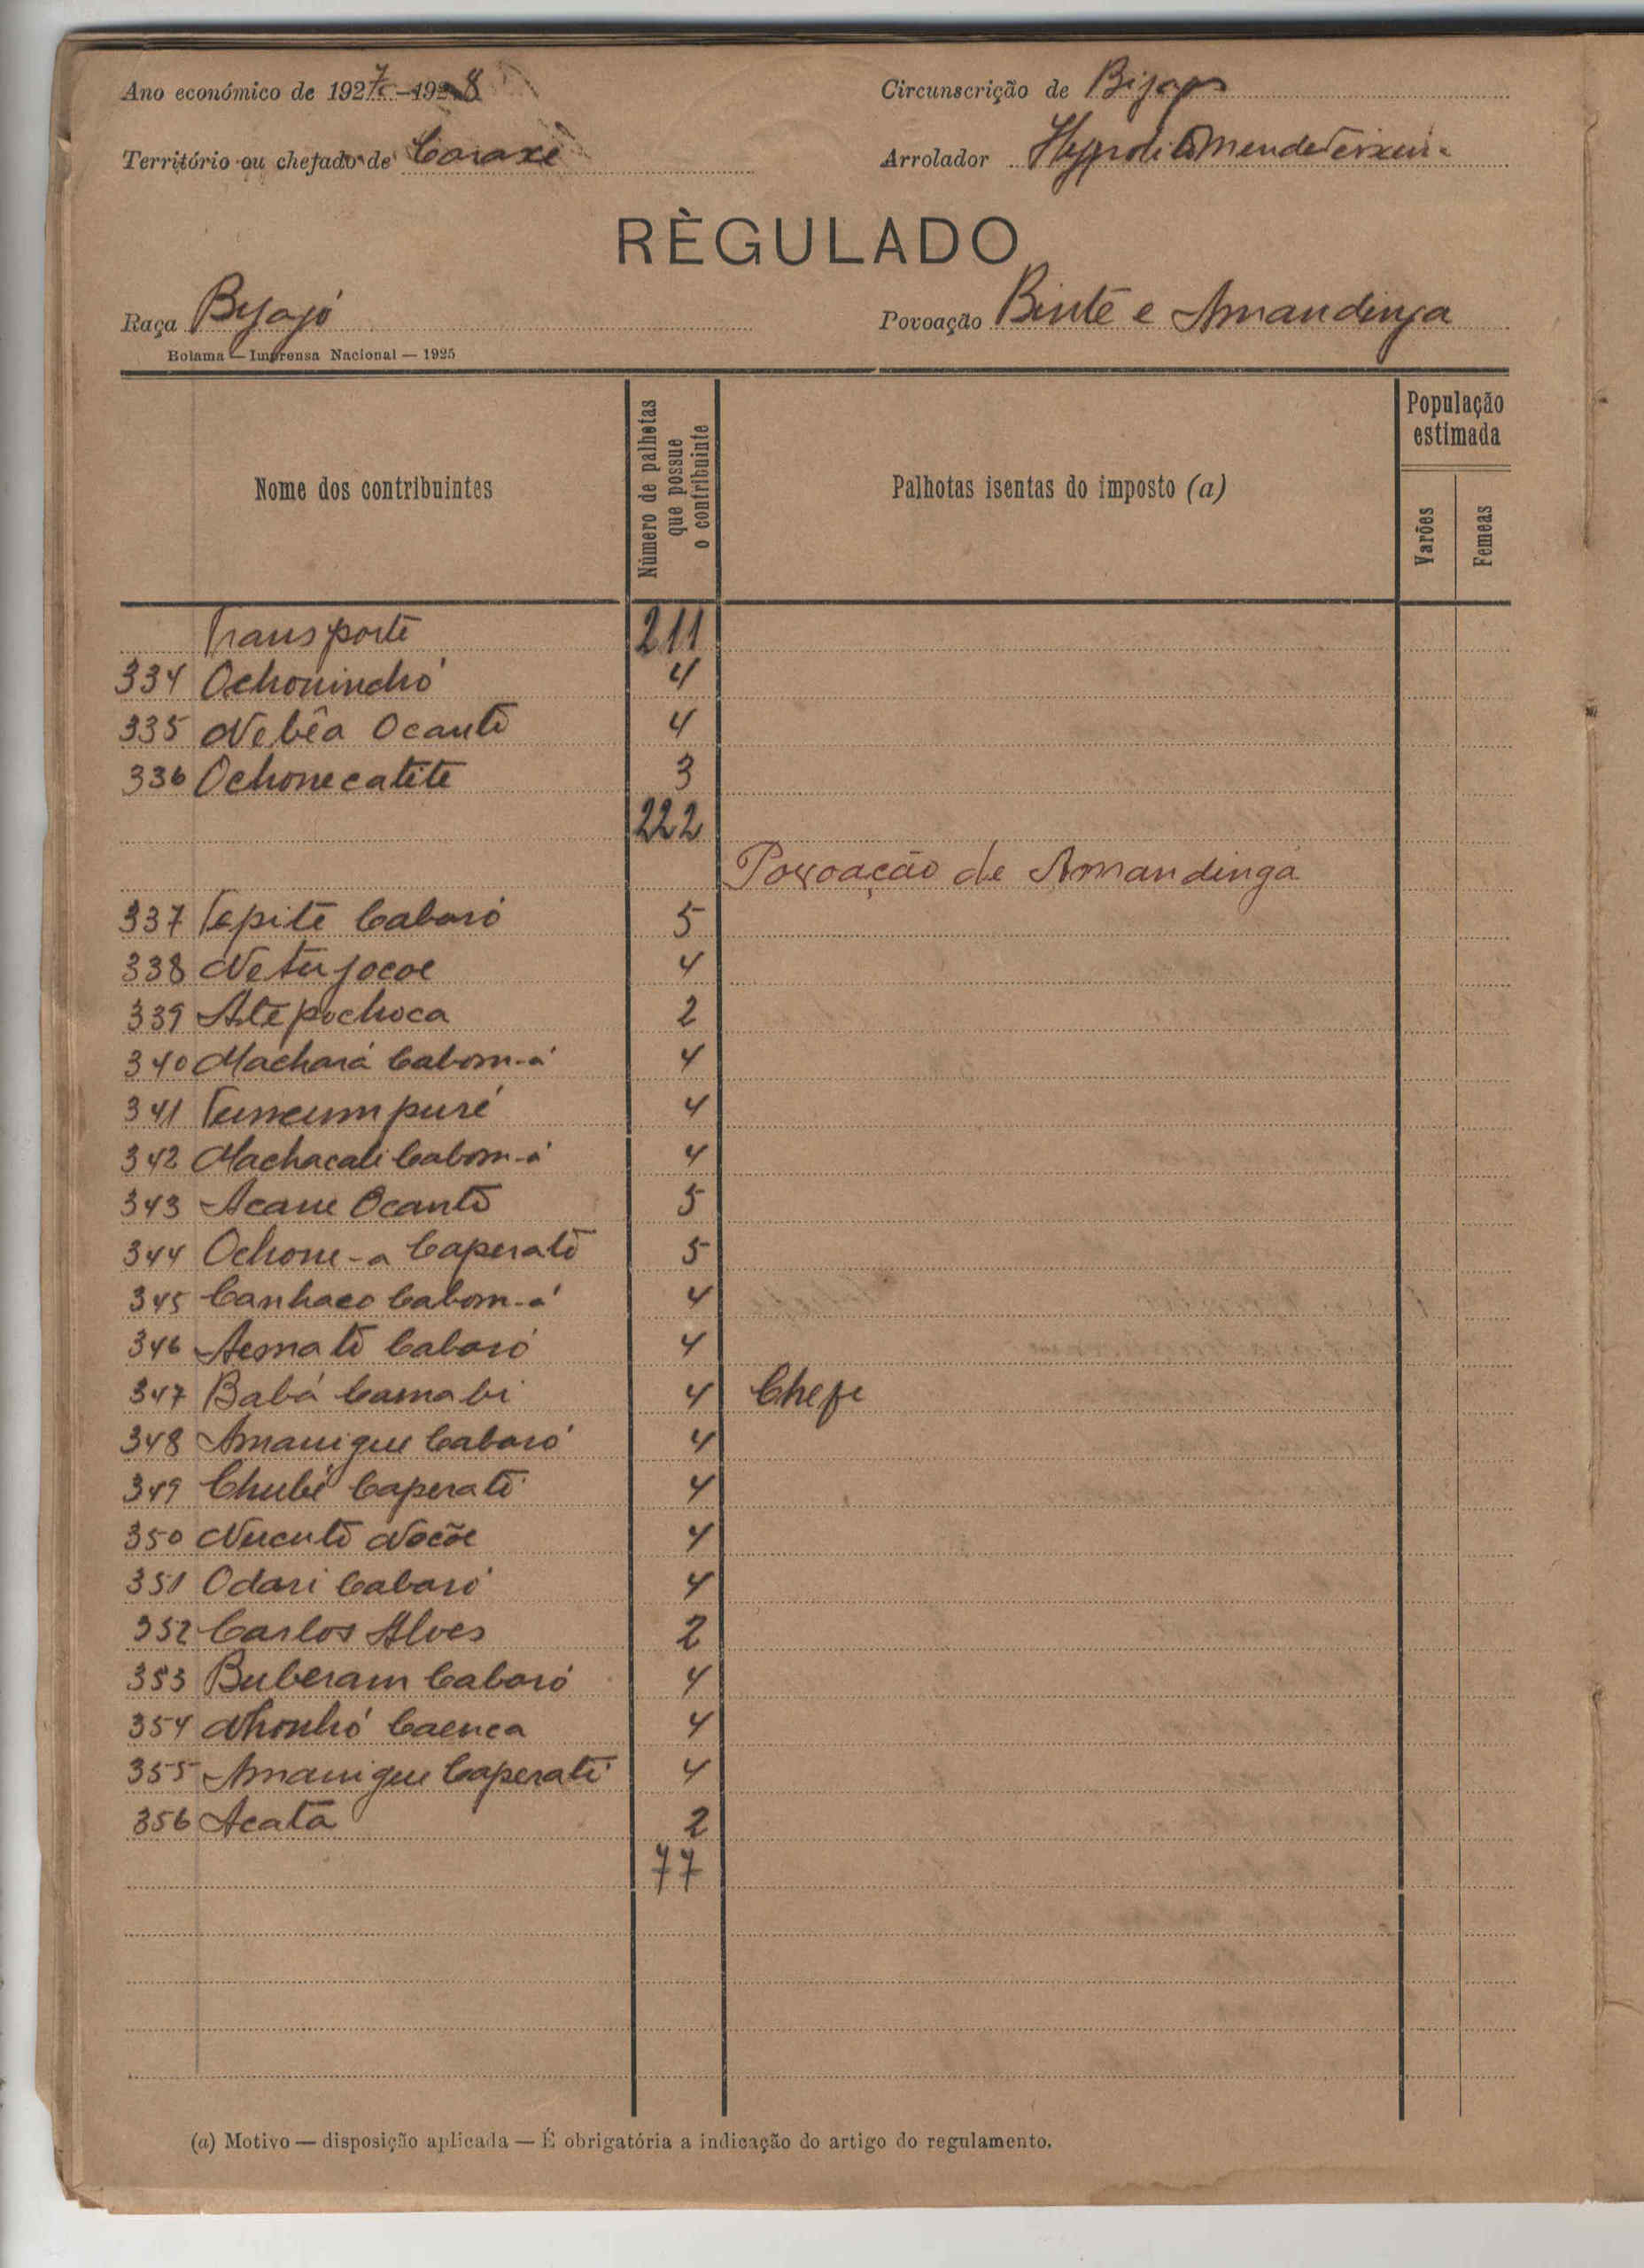 Ano económico de 1927-1928
Circunscrição de Bijagos
Território ou chefado de Caraxe
Arrolador Hypolito Mende Teixeira
RÈGULADO
Raça Byajó
Povoação Binte e Amandinga
Bolama — Imprensa Nacional — 1925
Nome dos contribuintes
Número de palhotas que possue o contribuinte
Palhotas isentas do imposto (a)
População estimada
Varões
Femeas
Transporte 211
334 Ochoninchó 4
335 Nebêa Ocantò 4
336 Ochonecatite 3
222
Povoação de Amandinga
337 Tepite Caboró 5
338 Netujocoe 4
339 Atepochoca 2
340 Machará Cabom-á 4
341 Tumcumpuré 4
342 Machacali Cabom-á 4
343 Acane Ocantò 5
344 Ochone-a Caperatò 5
345 Canhaco Cabom-á 4
346 Aematò Caboró 4
347 Babá Camabi 4 Chefe
348 Amanigue Caboró 4
349 Chubé Caperatò 4
350 Nucutò Nocõe 4
351 Odari Caboró 4
352 Carlos Alves 2
353 Buberam Caboró 4
354 Nhonhó Caenca 4
355 Amanigue Caperatò 4
356 Acatã 2
77
(a) Motivo — disposição aplicada — É obrigatória a indicação do artigo do regulamento.